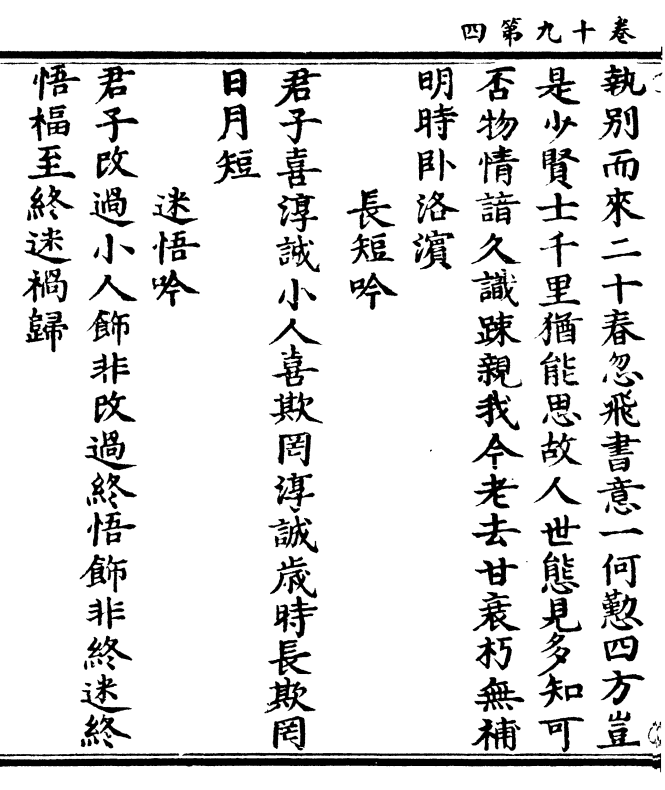 卷十九第四
執別而來二十春忽飛書意一何懃四方豈
是少賢士千里猶能思故人世態見多知可
否物情諳久識踈親我今老去甘衰朽無補
明時卧洛濱
長短吟
君子喜淳誠小人喜欺罔淳誠歲時長欺罔
日月短
迷悟吟
君子改過小人飾非改過終悟飾非終迷終
悟福至終迷禍歸